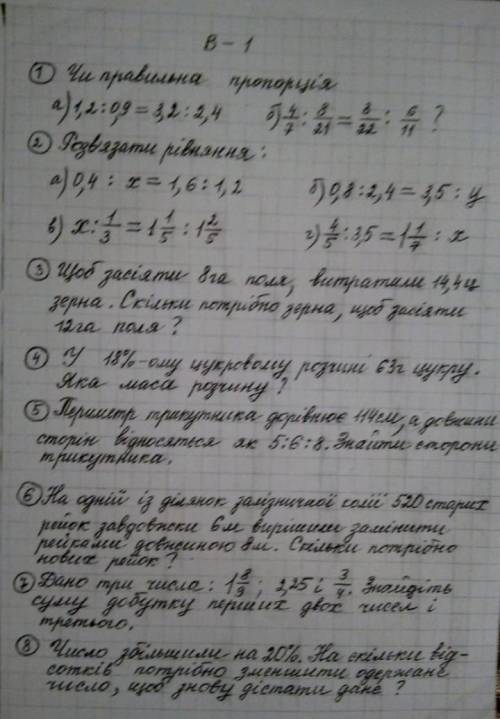 В - 1
① Чи правильна пропорція
а) 1,2 : 0,9 = 3,2 : 2,4 б) 4/7 : 8/21 = 8/22 : 6/11 ?
② Розв'язати рівняння:
а) 0,4 : x = 1,6 : 1,2 б) 0,8 : 2,4 = 3,5 : y
в) x : 1/3 = 1 1/5 : 1 2/5 г) 4/5 : 3,5 = 1 1/7 : x
③ Щоб засіяти 8га поля, витратили 14,4ц
зерна. Скільки потрібно зерна, щоб засіяти
12га поля ?
④ У 18%-ому цукровому розчині 63г цукру.
Яка маса розчину ?
⑤ Периметр трикутника дорівнює 114см, а довжини
сторін відносяться як 5:6:8. Знайти сторони
трикутника.
⑥ На одній із ділянок залізничної колії 520 старих
рейок завдовжки 6м вирішили замінити
рейками довжиною 8м. Скільки потрібно
нових рейок ?
⑦ Дано три числа: 1 8/9 ; 2,25 і 3/4. Знайдіть
суму добутку перших двох чисел і
третього.
⑧ Число збільшили на 20%. На скільки від-
сотків потрібно зменшити одержане
число, щоб знову дістати дане ?